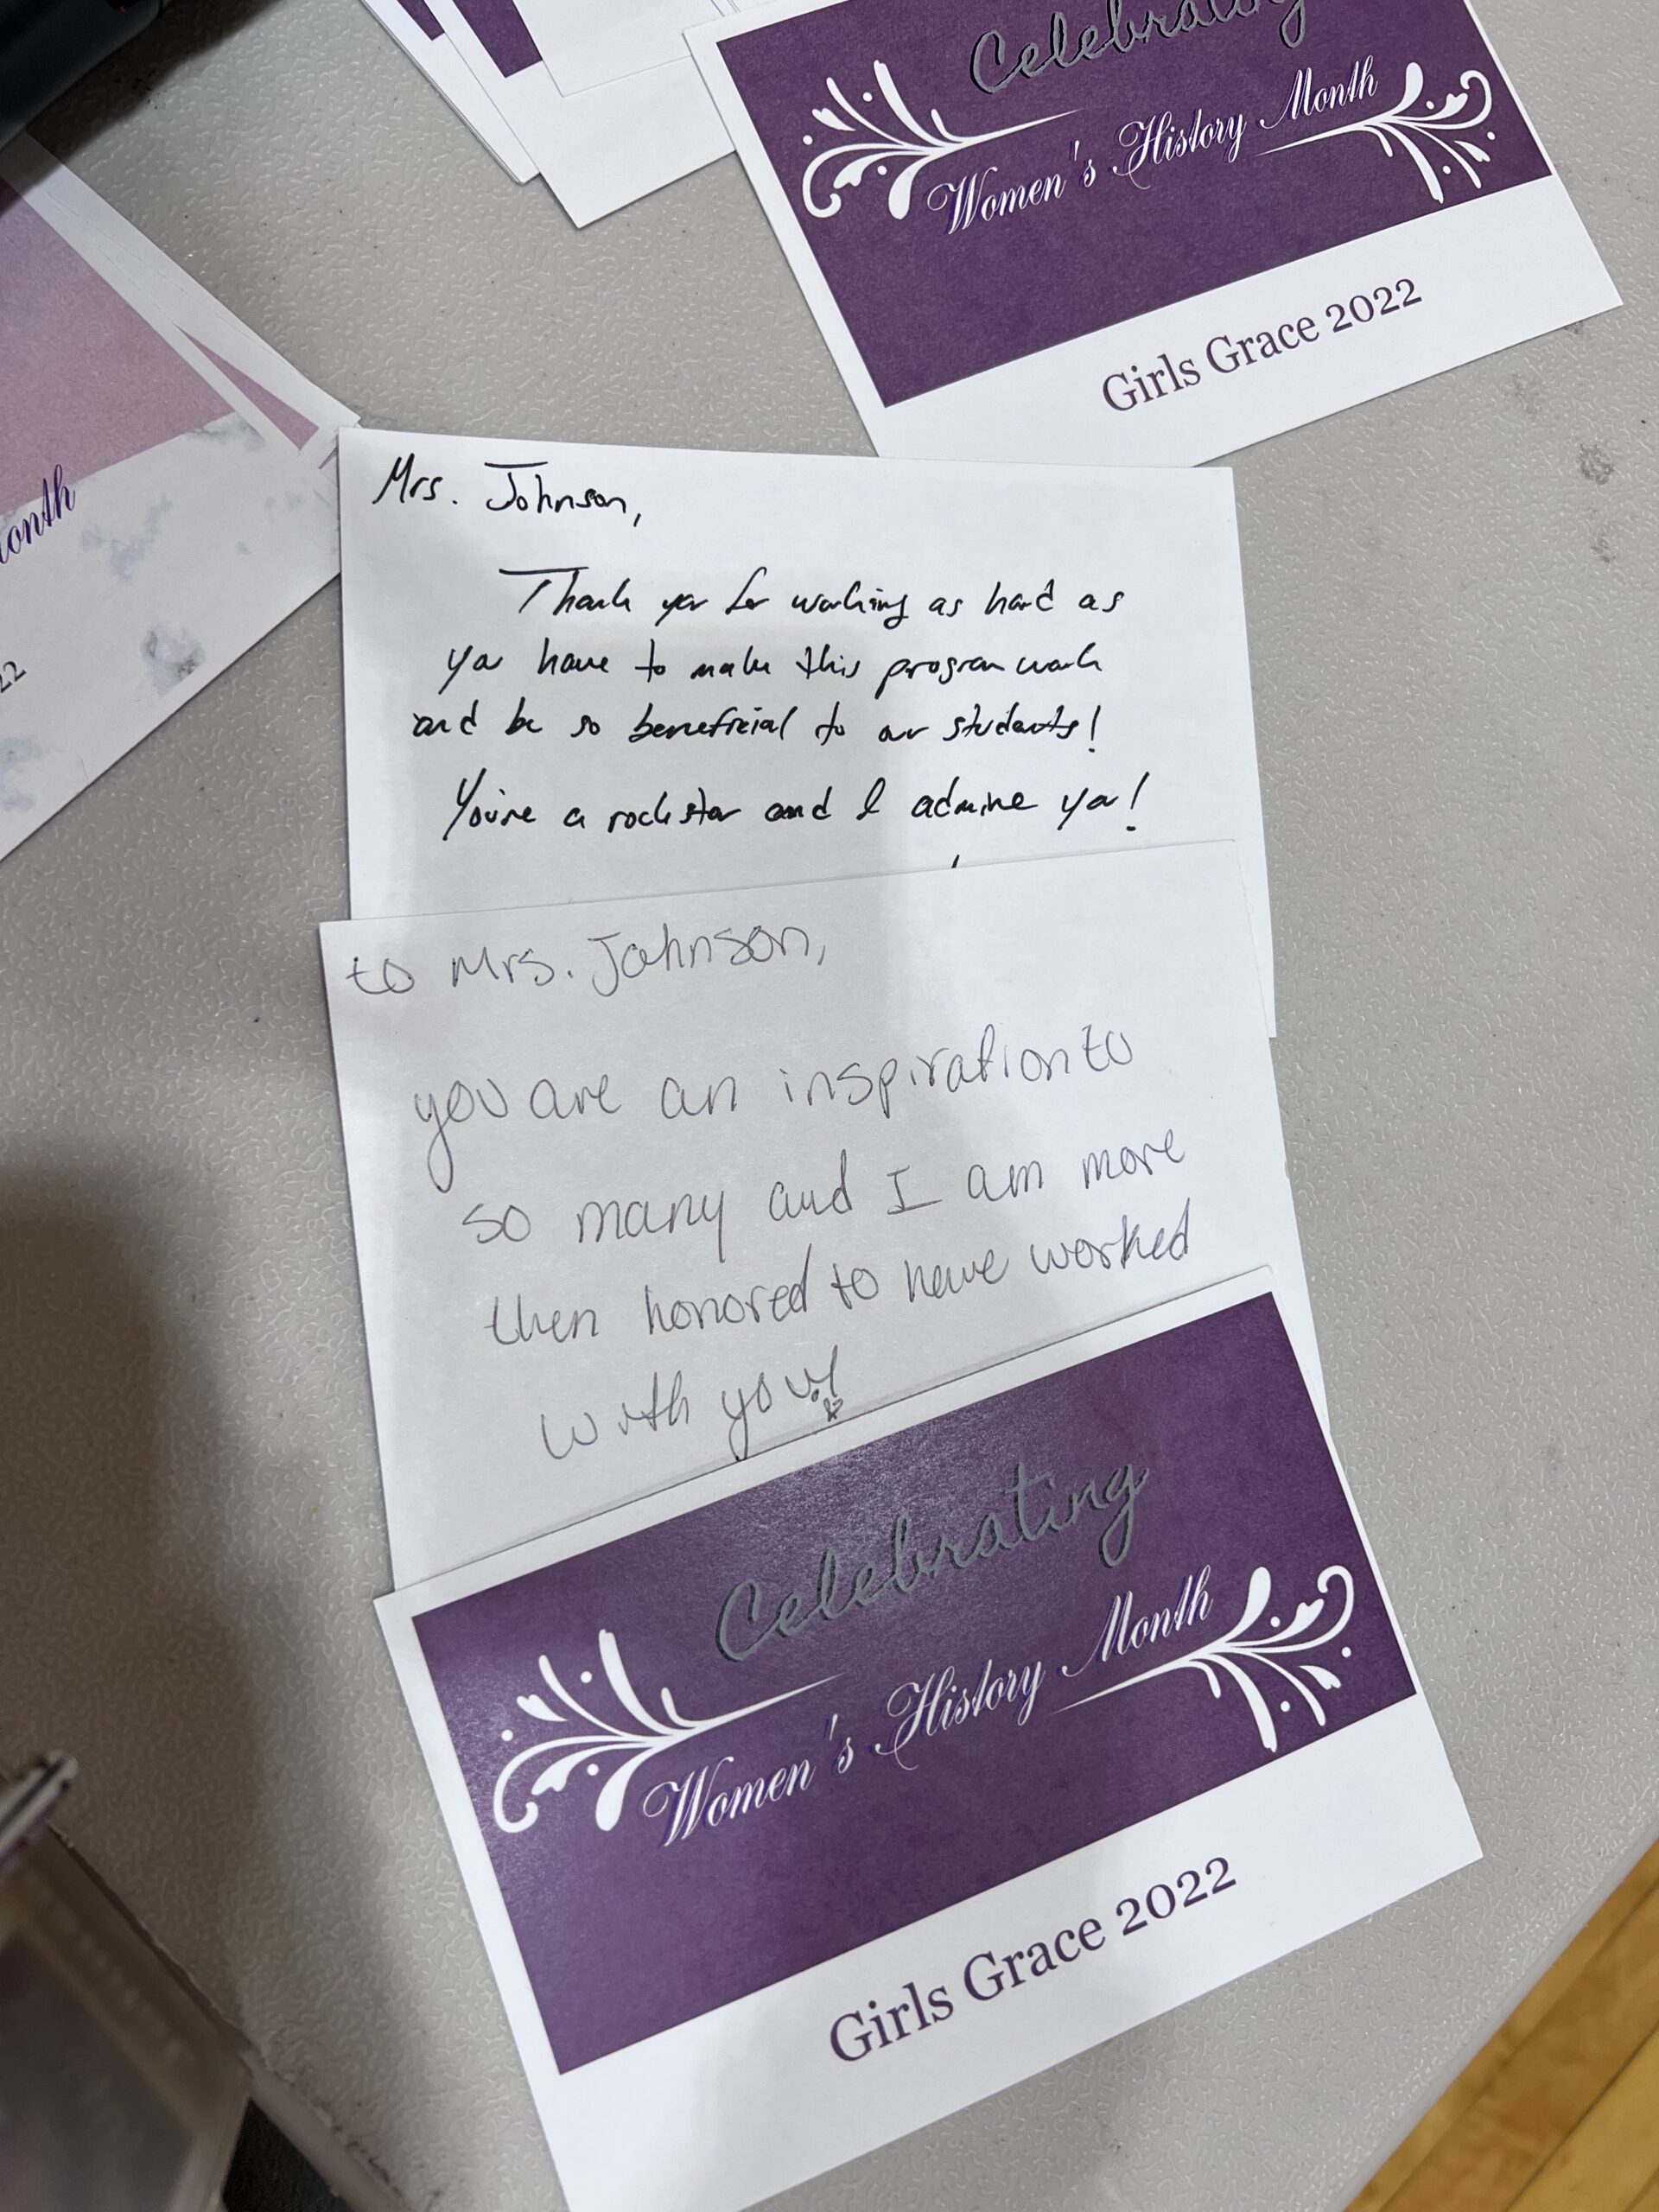 Celebrating
Women's History Month
Girls Grace 2022
onth
22
Mrs. Johnson,
Thank you for working as hard as
you have to make this program work
and be so beneficial to our students!
You're a rockstar and I admire you!
to Mrs. Johnson,
you are an inspiration to
so many and I am more
then honored to have worked
with you!
Celebrating
Women's History Month
Girls Grace 2022